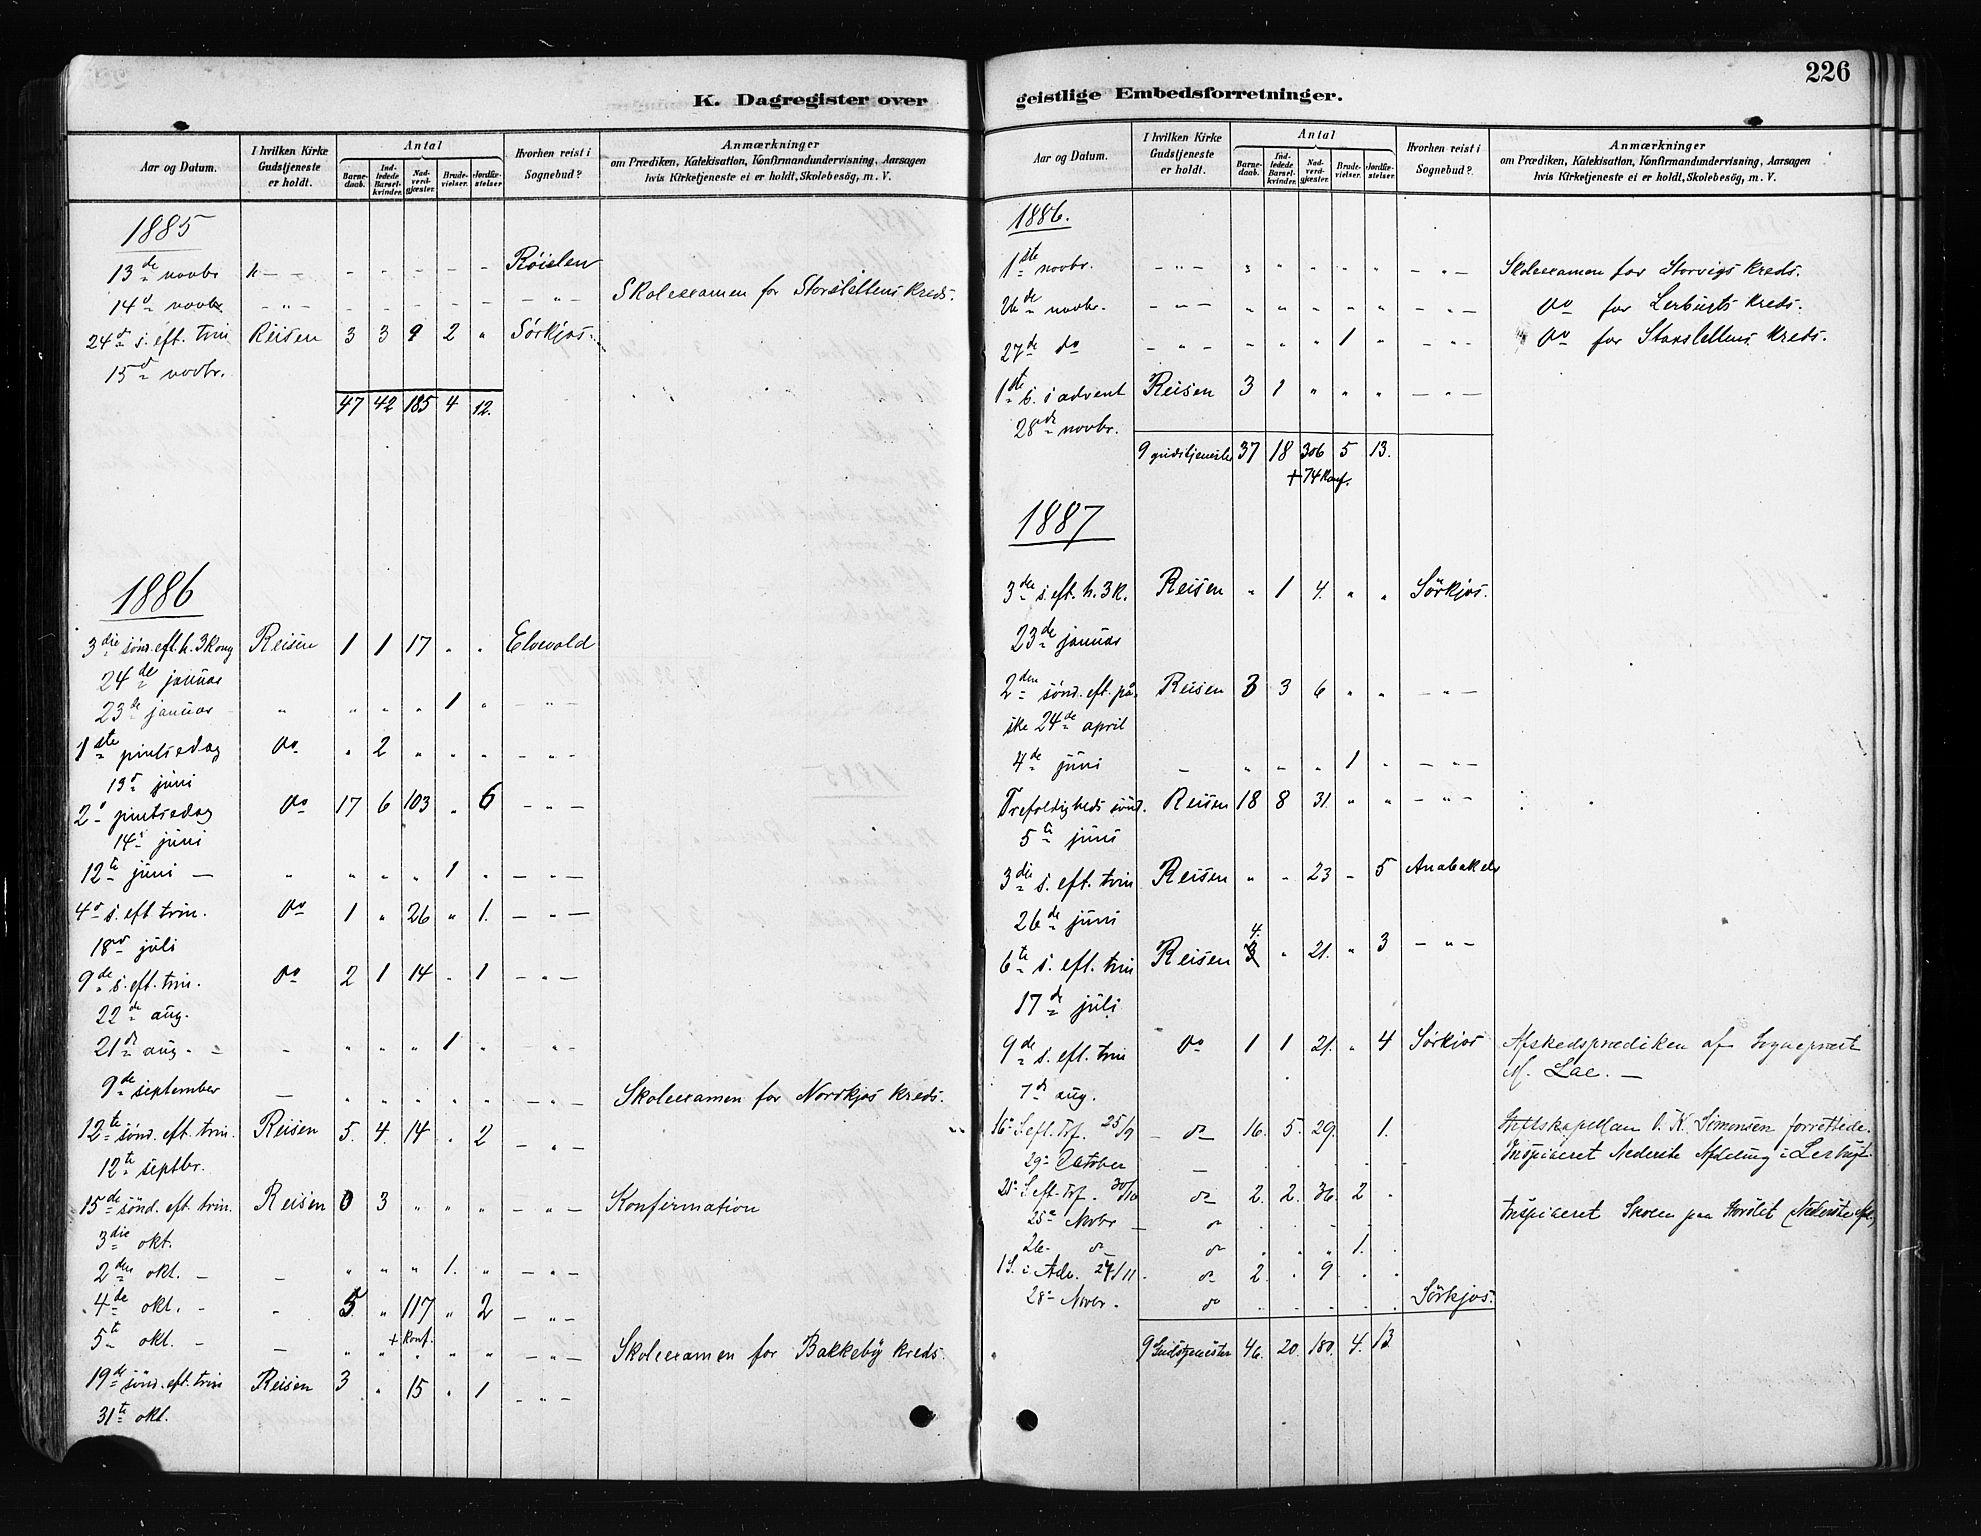 K. Dagregister over
Aar og Datum. | I hvilken Kirke Gudstjeneste er holdt. | Antal | Barnedaab. | Indledede Barselkvinder. | Nadverdgjæster. | Brudevielser. | Jordfæstelser. | Hvorhen reist i Sognebud? | Anmærkninger om Prædiken, Katekisation, Konfirmandundervisning, Aarsagen hvis Kirketjeneste ei er holdt, Skolebesög, m. V.
1885
13de novbr " – – – – – – – Röielen
14d novbr – " – – – – – – – " – Skoleexamen for Storslettens kreds.
24d s. eft. trin Reisen 3 3 9 2 " Sørkjos.
15d novbr.
47 42 185 4 12.
1886
3die sønd. eft. h. 3 Kong Reisen 1 1 17 " " Elvevold
24de januar
23de januar " " " " 1 " – " –
1ste pintsedag do " 2 " " " – " –
13d juni
2d pintsedag do 17 6 103 " 6 – " –
14d juni
12te juni – " " " " 1 " – " –
4d s. eft trin. do 1 " 26 " 1. – " –
18de juli
9de s. eft. trin. do 2 1 14 " 1 – " –
22de aug.
21de aug. – – " " " 1 " – " –
9de september – " " " " " – " – Skoleexamen for Nordkjos kreds.
12te sønd. eft. trin. Reisen 5. 4. 14 " 2 – " –
12te septbr.
15de sönd. eft. trin. Reisen 0 3 " " " – " – Konfirmation
3die okt.
2den okt. – – " " " 1. " – " –
4de okt. – - 5. " 117 " 2 – " –
+ konf.
5te okt. – – " " " " " – " – Skoleexamen for Bakkeby kreds.
19de sönd. eft. trin Reisen 3 " 15 " 1 – " –
31te okt.
226
geistlige Embedsforretninger.
Aar og Datum. | I hvilken Kirke Gudstjeneste er holdt. | Antal | Barnedaab. | Indledede Barselkvinder. | Nadverdgjæster. | Brudevielser. | Jordfæstelser. | Hvorhen reist i Sognebud? | Anmærkninger om Prædiken, Katekisation, Konfirmandundervisning, Aarsagen hvis Kirketjeneste ei er holdt, Skolebesög, m. V.
1886.
1ste novbr. – " – " " " " " – " – Skoleexamen for Storvigs kreds.
26de novbr. – " – " " " " " – " – do for Lerbugts kreds.
27de do – " – " " " 1 " – " – do for Storslettens kreds.
1ste s. i advent Reisen 3 1 " " " – " –
28de novbr.
9 gudstjenester 37 18 306 5 13.
+ 74 konf.
1887
3die s. eft. h. 3 K. Reisen " 1 4. " " Sörkjos.
23de januar
2den sönd. eft. på- Reisen 3 3 6 " " – " –
ske 24de april
4de juni – " " " 1 " – " –
Trefoldigheds sönd. Reisen 18 8 31. " " – " –
5te juni
3die s. eft. trin Reisen " " 23 – 5 Anabakelv
26de juni
4.
6te s. eft. trin Reisen 3 " 21. " 3 – " –
17de juli
9de s. eft. trin do 1 1 21. " 4 Sørkjos Afskedsprædiken af Sogneprest
7de aug. M. Lae. –
16de S. eft. Trf. 25/9 – do 16. 5. 29. 1. Stiftskapellan O. K. Simonsen forrettede.
29de October – Inspiceret Nederste Afdeling i Lerbugt.
21de S. eft. Trf. 30/10 do 2. 2. 36. 2 "
25de Novbr – do Inspiceret Skolen paa Storslet (Nederste Afd.)
26de do do 1.
1 S. i Adv. 27/11. do 2. . 9.
28de Novbr. do Sörkjos.
9 Gudstjenester 46. 20. 180. 4. 13.